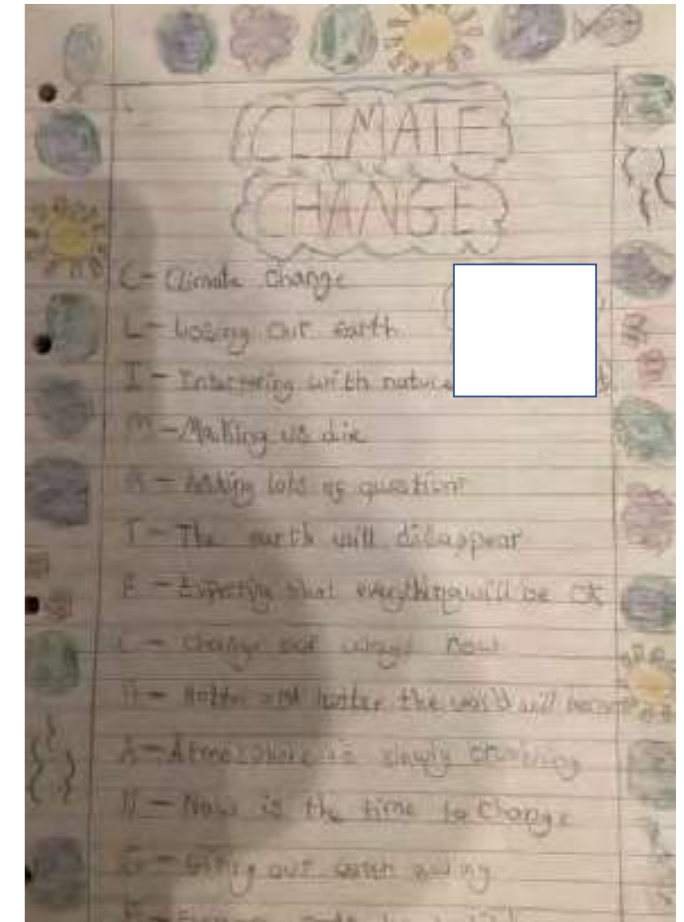 CLIMATE
CHANGE
C- Climate change
L- Losing our earth
I - Interfering with nature
M - Making us die
A - Asking lots of questions
T - The earth will disappear
E - Expecting that everything will be OK
C - Change our ways now
H - Hotter and hotter the world will become
A - Atmosphere is slowly crushing
N - Now is the time to change
G - Giving our earth
E -